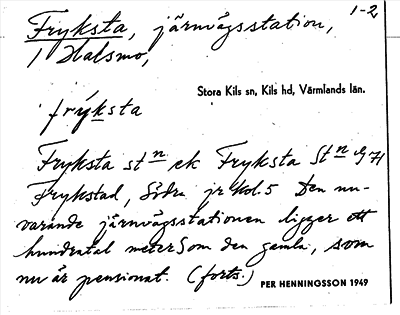 1-2
Fryksta, järnvägsstation,
/ Halsmo,
Stora Kils sn, Kils hd, Värmlands län.
frýksta
Fryksta stn ek Fryksta Stn G 71
Frykstad, Södra jr kol. 5 Den nu-
varande järnvägsstationen ligger ett
hundratal meter som den gamla, som
nu är pensionat. (forts.)
PER HENNINGSSON 1949